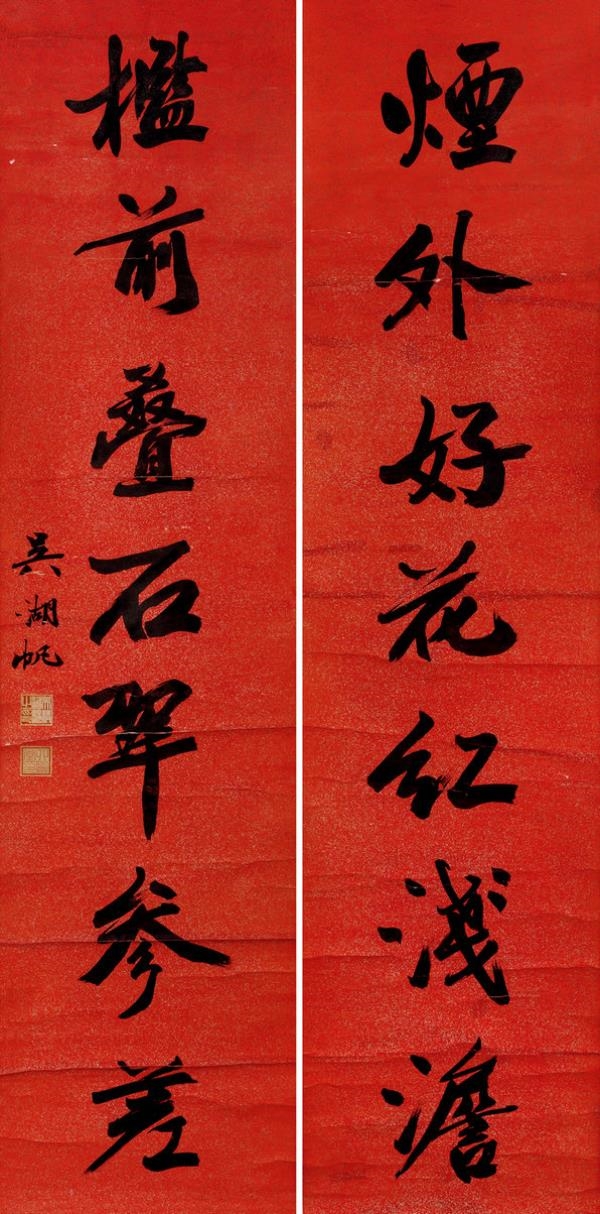 煙外好花紅淺澹
檻前疊石翠參差
吳湖帆